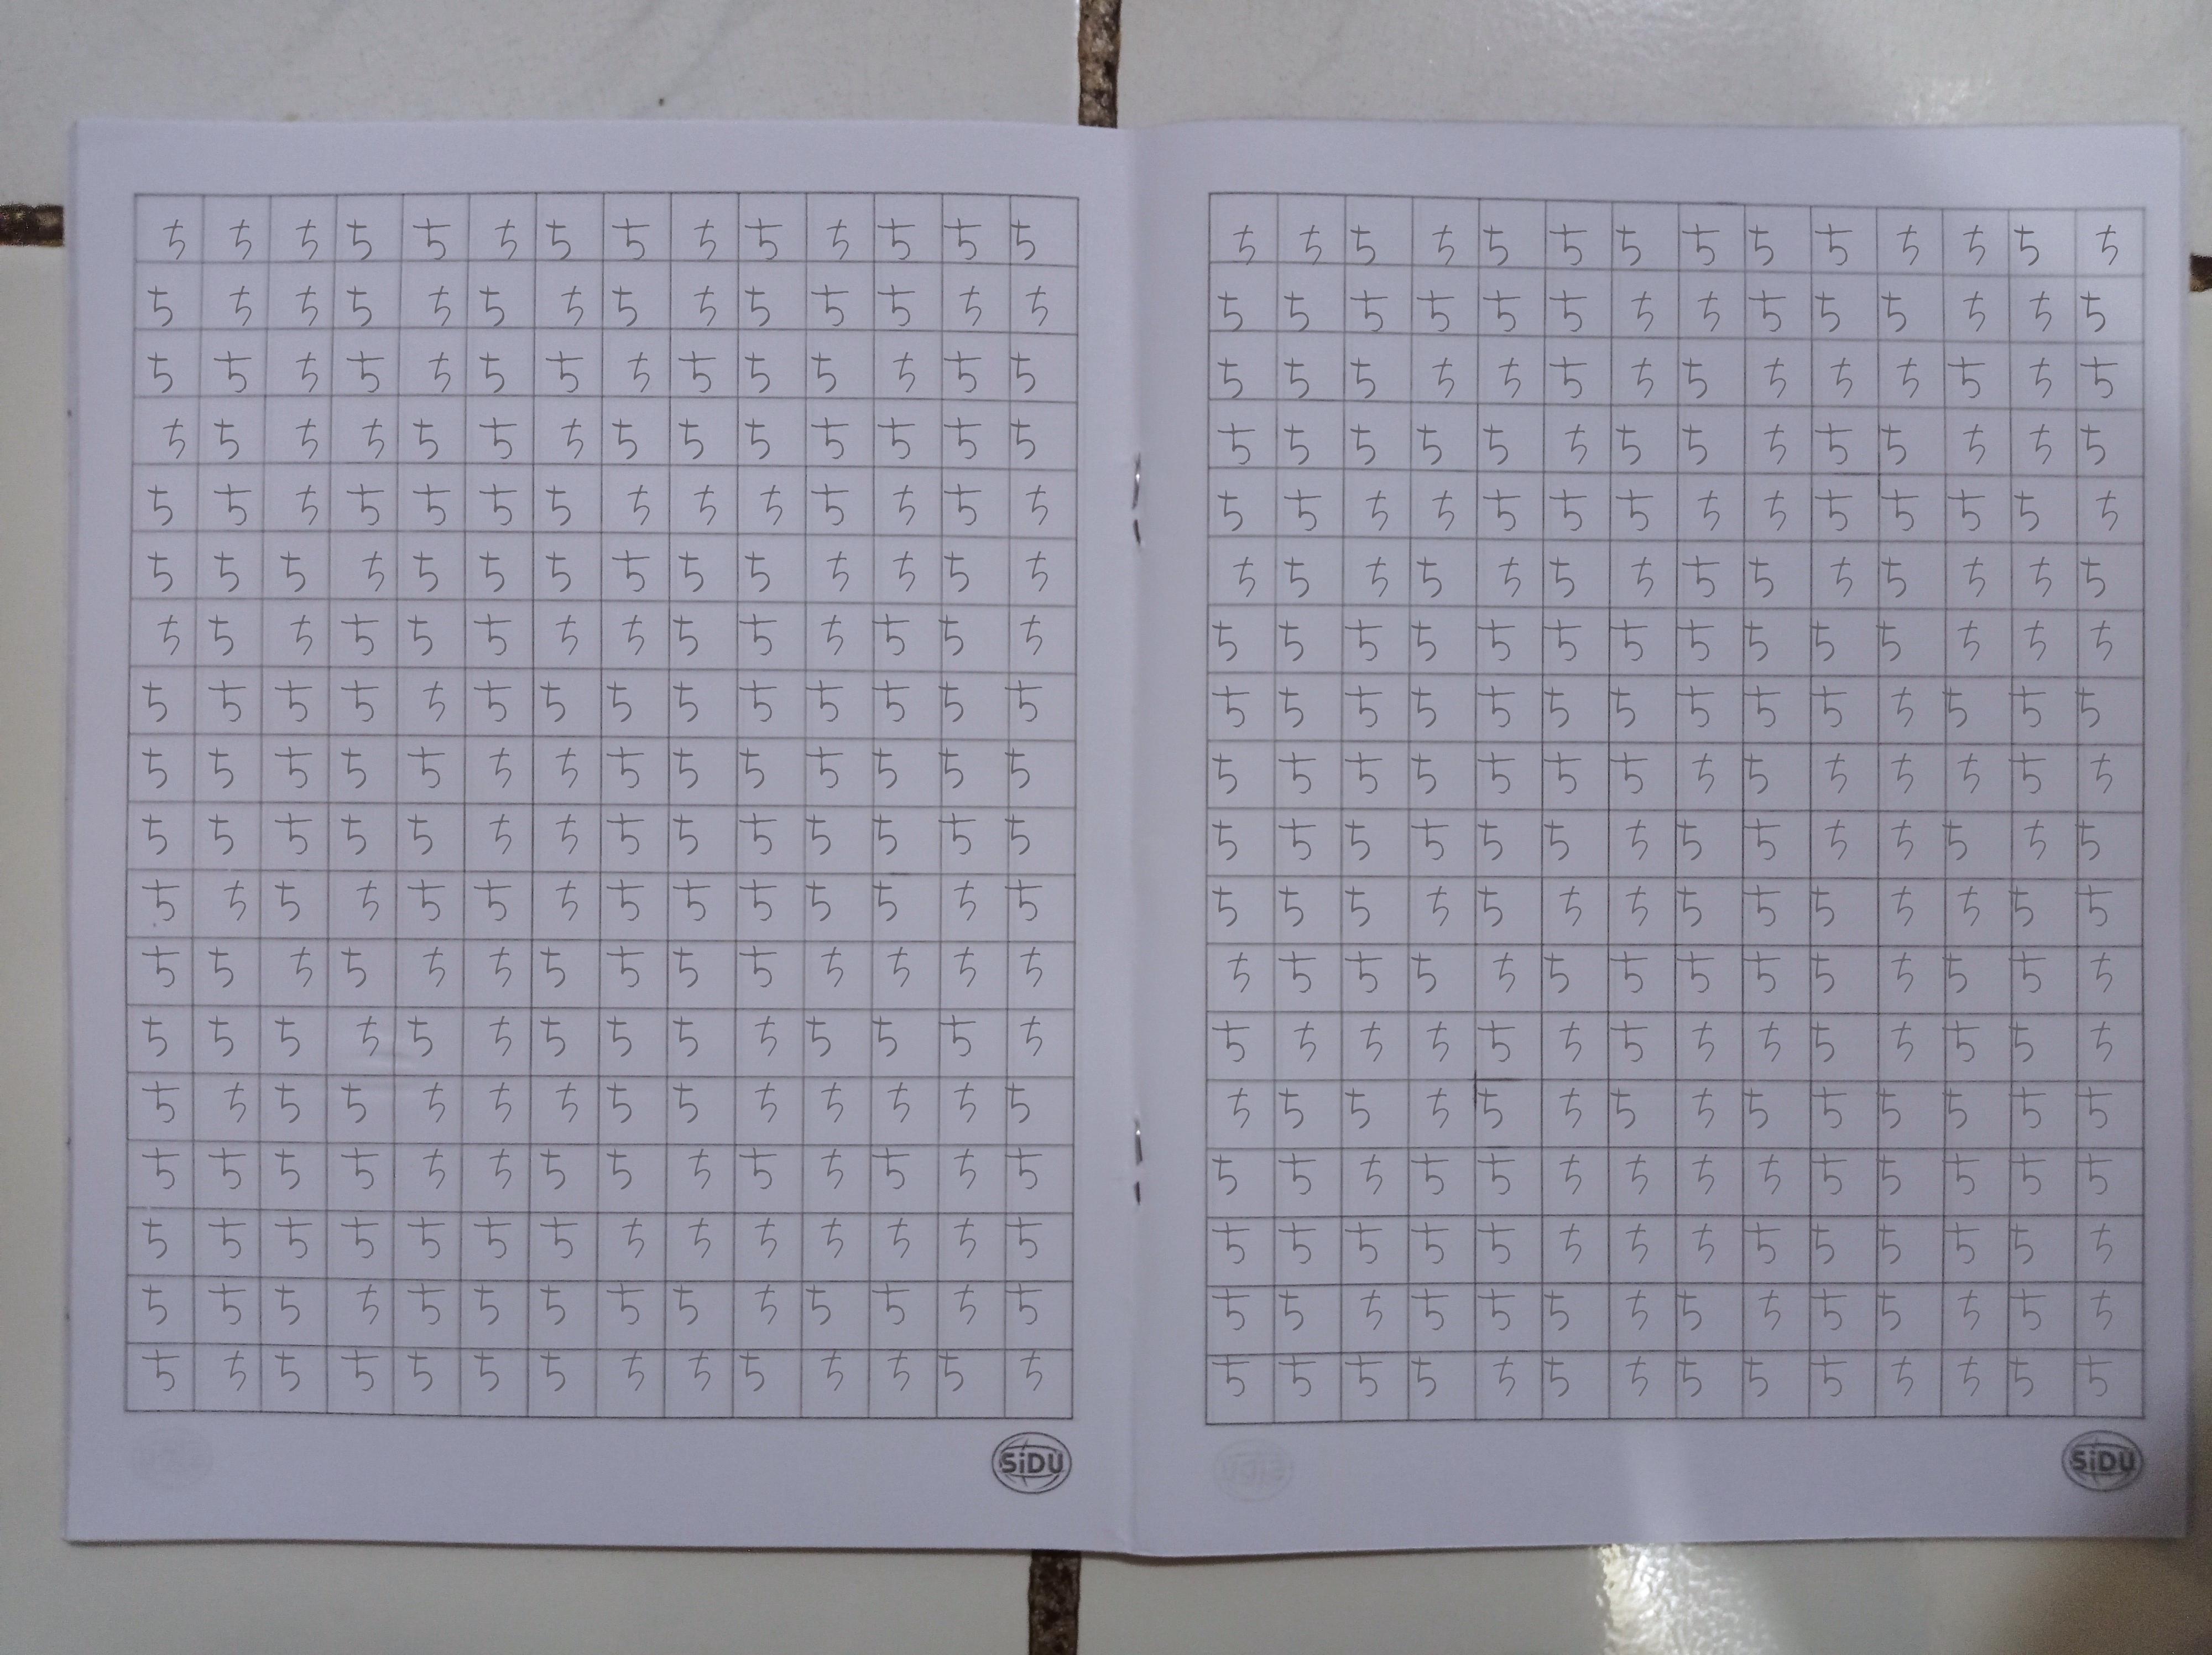 ち ち ち ち ち ち ち ち ち ち ち ち ち ち
ち ち ち ち ち ち ち ち ち ち ち ち ち ち
ち ち ち ち ち ち ち ち ち ち ち ち ち ち
ち ち ち ち ち ち ち ち ち ち ち ち ち ち
ち ち ち ち ち ち ち ち ち ち ち ち ち ち
ち ち ち ち ち ち ち ち ち ち ち ち ち ち
ち ち ち ち ち ち ち ち ち ち ち ち ち ち
ち ち ち ち ち ち ち ち ち ち ち ち ち ち
ち ち ち ち ち ち ち ち ち ち ち ち ち ち
ち ち ち ち ち ち ち ち ち ち ち ち ち ち
ち ち ち ち ち ち ち ち ち ち ち ち ち ち
ち ち ち ち ち ち ち ち ち ち ち ち ち ち
ち ち ち ち ち ち ち ち ち ち ち ち ち ち
ち ち ち ち ち ち ち ち ち ち ち ち ち ち
ち ち ち ち ち ち ち ち ち ち ち ち ち ち
ち ち ち ち ち ち ち ち ち ち ち ち ち ち
ち ち ち ち ち ち ち ち ち ち ち ち ち ち
ち ち ち ち ち ち ち ち ち ち ち ち ち ち
SiDU
ち ち ち ち ち ち ち ち ち ち ち ち ち ち
ち ち ち ち ち ち ち ち ち ち ち ち ち ち
ち ち ち ち ち ち ち ち ち ち ち ち ち ち
ち ち ち ち ち ち ち ち ち ち ち ち ち ち
ち ち ち ち ち ち ち ち ち ち ち ち ち ち
ち ち ち ち ち ち ち ち ち ち ち ち ち ち
ち ち ち ち ち ち ち ち ち ち ち ち ち ち
ち ち ち ち ち ち ち ち ち ち ち ち ち ち
ち ち ち ち ち ち ち ち ち ち ち ち ち ち
ち ち ち ち ち ち ち ち ち ち ち ち ち ち
ち ち ち ち ち ち ち ち ち ち ち ち ち ち
ち ち ち ち ち ち ち ち ち ち ち ち ち ち
ち ち ち ち ち ち ち ち ち ち ち ち ち ち
ち ち ち ち ち ち ち ち ち ち ち ち ち ち
ち ち ち ち ち ち ち ち ち ち ち ち ち ち
ち ち ち ち ち ち ち ち ち ち ち ち ち ち
ち ち ち ち ち ち ち ち ち ち ち ち ち ち
ち ち ち ち ち ち ち ち ち ち ち ち ち ち
SiDU